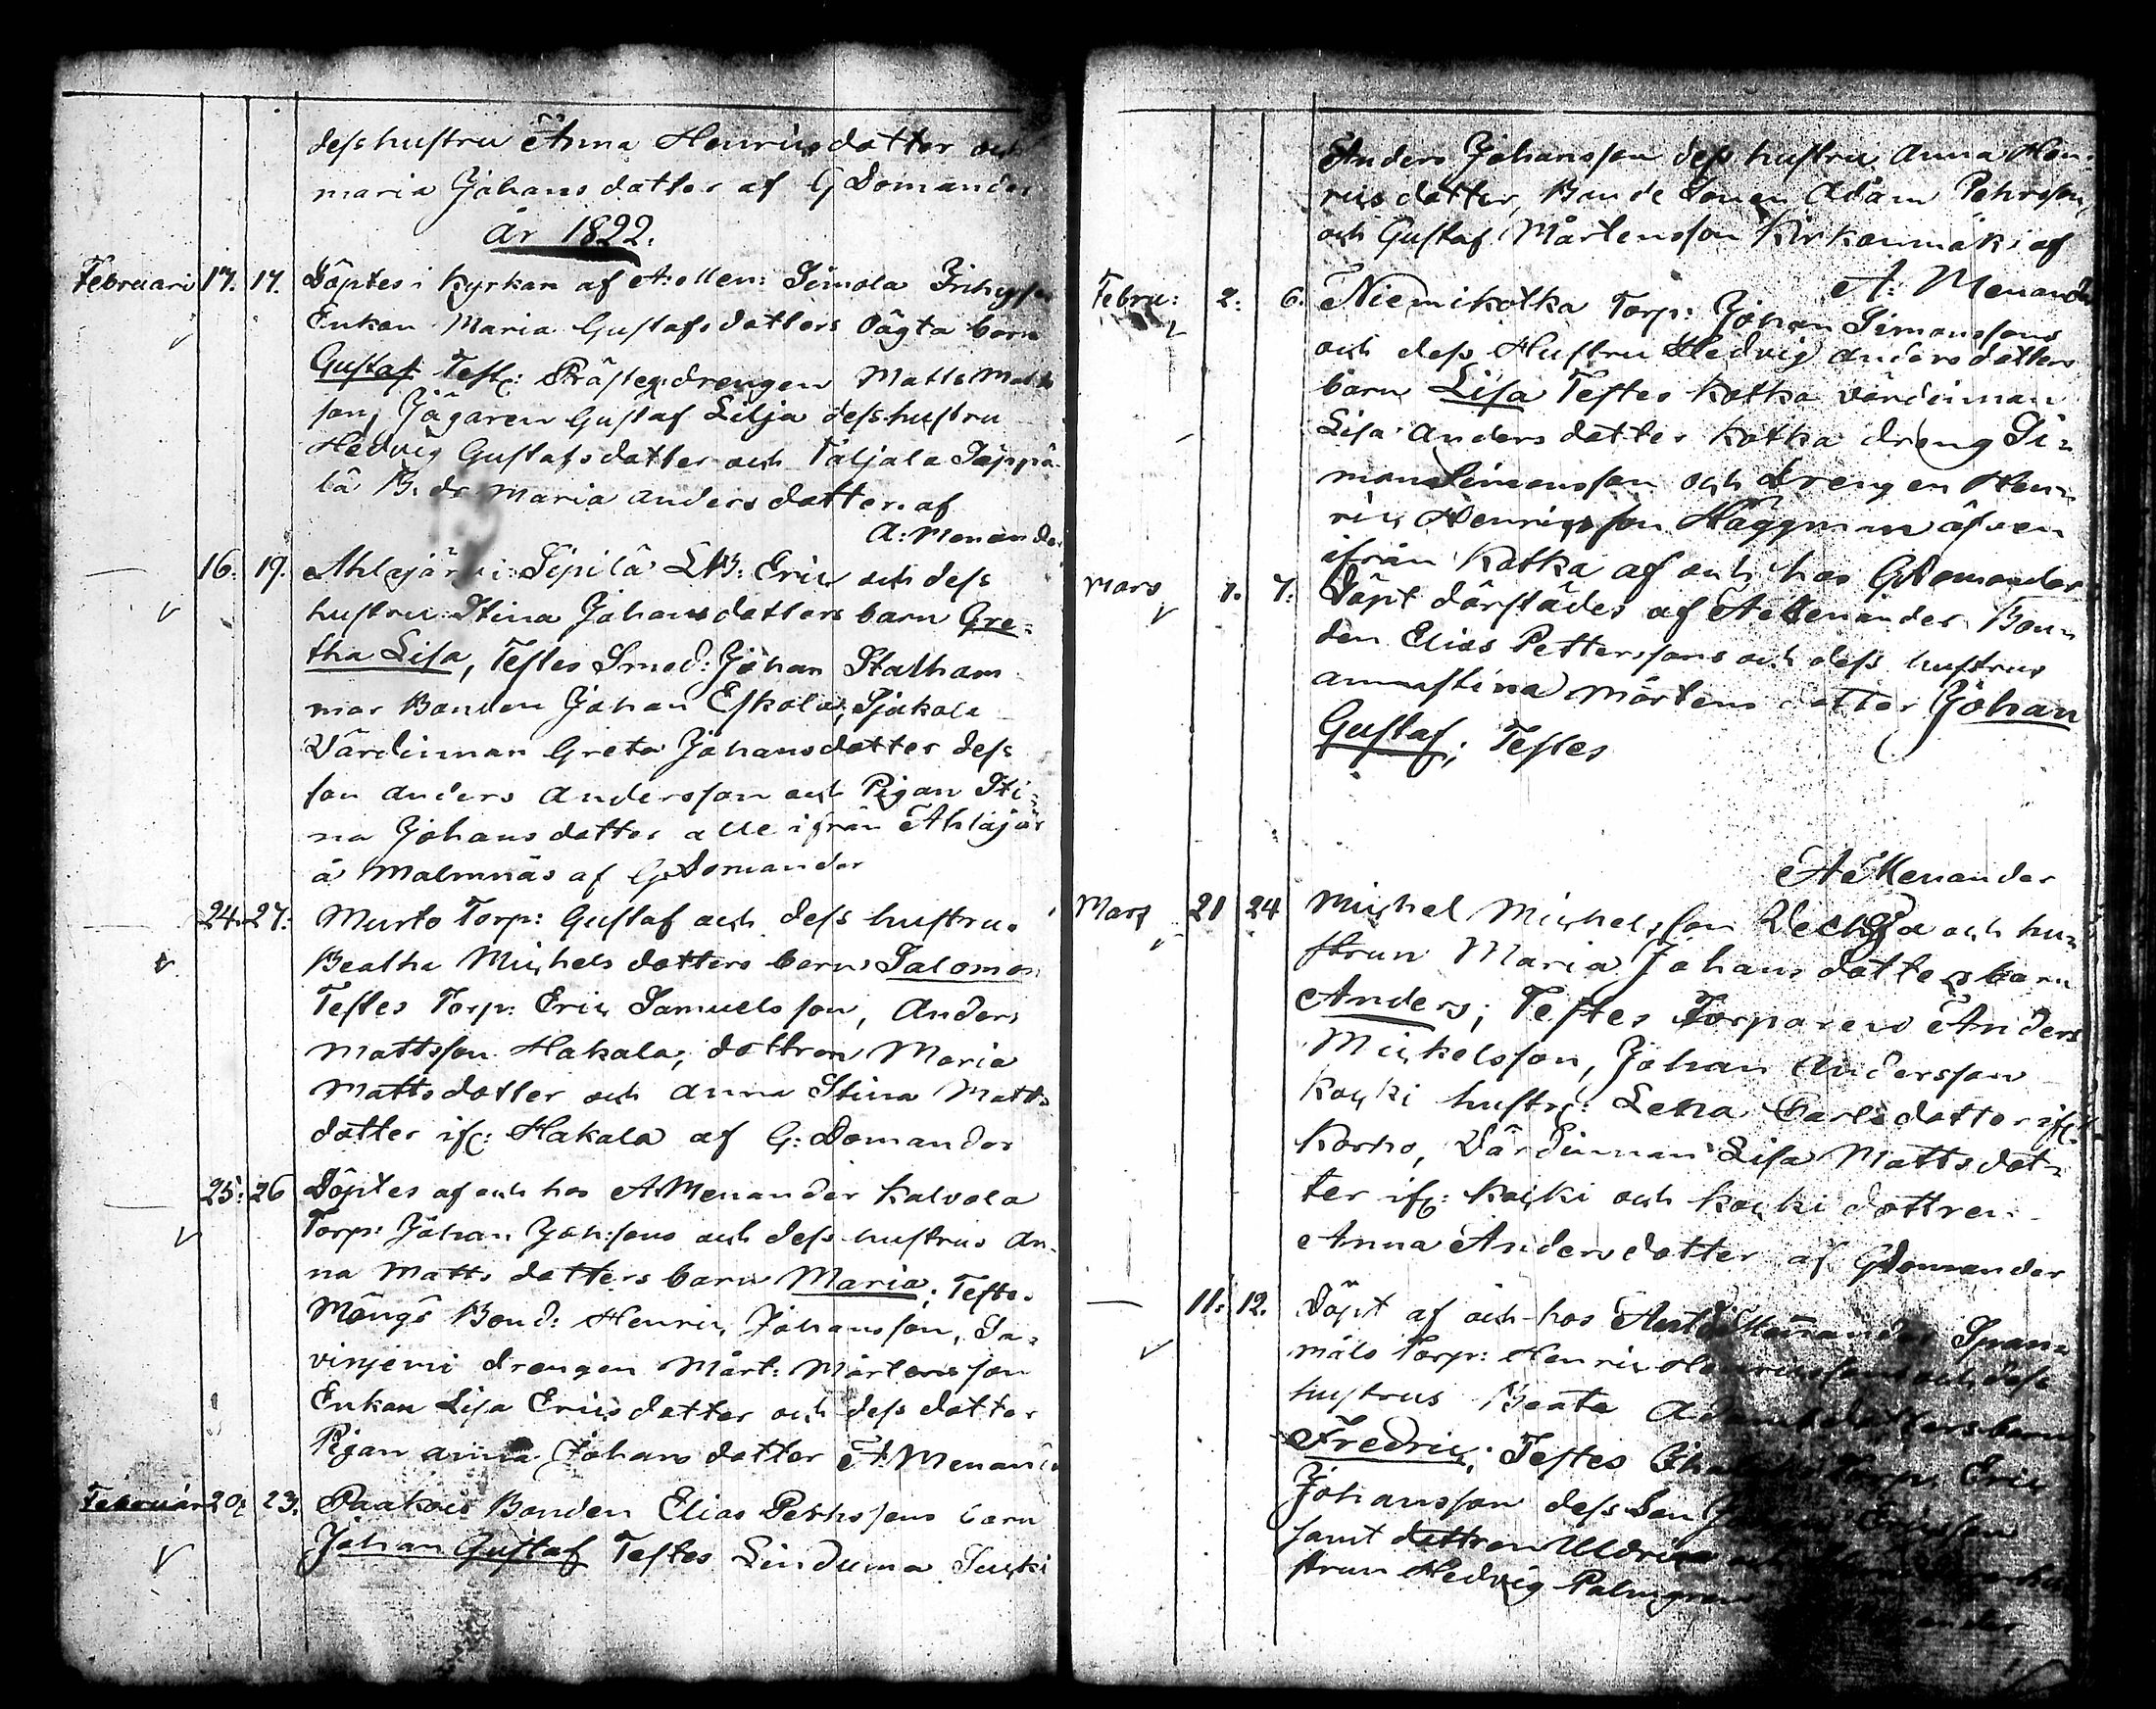 dess hustru Anna Henricsdotter och
maria Johansdotter af G Domander
år 1822.
Februari 17. 17. Döptes i Kyrkan af A: Men: Simola
Enkan Maria Gustafsdotters oägta barn
Gustaf Test: Prästegs drengen Matts Matts
son, Jägaren Gustaf Lilja dess hustru
Hedvig Gustafsdotter och Taljala Seppä
lä B. dr Maria Andersdotter. af
A: Menander
16. 19. Ahlajärvi Sipilä LB: Eric och dess
hustru Stina Johansdotters barn Gre-
tha Lisa, Testes Smed: Johan Stalham
mar Bonden Johan Eskola, Sjukola
Värdinnan Greta Johansdotter dess
son Anders Andersson och Pigan Sti-
na Johansdotter alle ifrån Ahlajär
å Malmnäs af G Domander
24. 27. Murto Torp: Gustaf och dess hustru
Beatha Michelsdotters barn Salomon
Testes Torp: Eric Samuelsson, Anders
Mattsson Hakala, dottren Maria
Mattsdotter och Anna Stina Matts
dotter if: Hakala af G: Domander
25. 26 Döptes af och hos A Menander Kalvola
Torp: Johan Joh:sons och dess hustrus An-
na Mattsdotters barn Maria; Testes
Mångs Bond: Henric Johansson, Sa-
vinjemi drengen Mårt: Mårtensson
Enkan Lisa Ericsdotter och dess dotter
Pigan Anna Johansdotter A Menander
Februari 20. 23. Paakois Bonden Elias Pehrssons barn
Johan Gustaf Testes Linduma Suski
Anders Johansson dess hustru Anna Hen-
ricsdotter, Bonde Sonen Adam Pehrsson,
och Gustaf Mårtensson Kirkonmäki af
A: Menander
Febru: 2. 6. Niemikotka Torp: Johan Simonssons
och dess Hustru Hedvig Andersdotters
barn Lisa Testes Kotka värdinnan
Lisa Andersdotter Kotka dreng Si-
mon Simonsson och Drengen Hen-
ric Henricsson Häggman äfven
ifrån Kotka af och hos G Domander
Mars 7. 7. Döpt därstädes af A Menander Bon-
den Elias Petterssons och dess hustrus
annastina Mårtensdotter Johan
Gustaf; Testes
A Menander
Mars 21 24 Michel Michelsson och hu-
strun Maria Johansdotters barn
Anders; Testes Torparen Anders
Mickelsson, Johan Andersson
Kocki hustr: Lena Carlsdotter if:
Korho, Värdinnan Lisa Mattsdot-
ter if: Kocki och Kocki dottren
Anna Andersdotter af G Domander
11. 12. Döpt af och hos Menander Span-
mäls Torp: Henric Henricssons och dess
hustrus Beata Adamsdotters barn
Fredric; Testes Torp. Eric
Johansson dess Son Ericsson
samt dottren Ulrica och
strun Hedvig Palmgren
ander